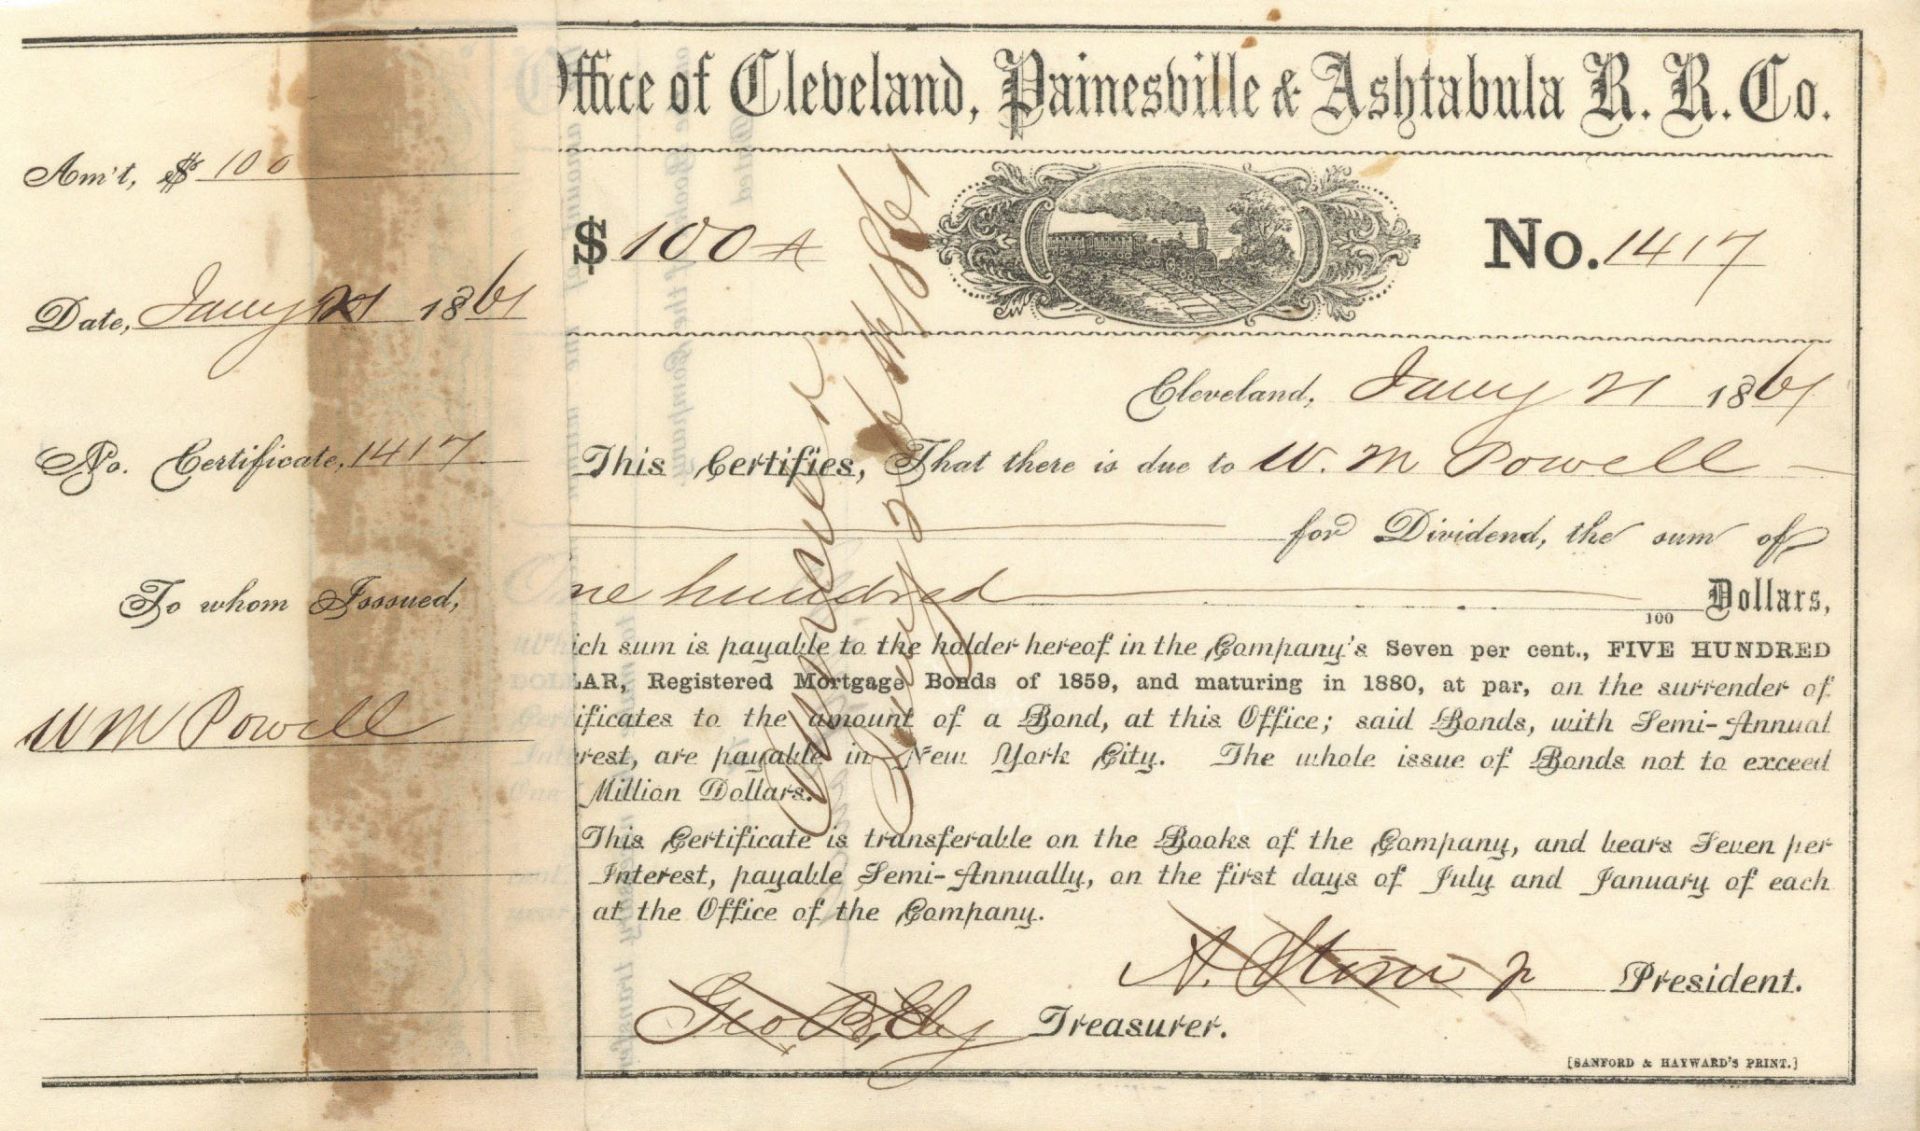 Am't, $ 100
Date, Jany 21 1861
No. Certificate, 1417
To whom Issued,
W M Powell
Office of Cleveland, Painesville & Ashtabula R. R. Co.
$ 100
No. 1417
Cleveland, Jany 21 1861
This Certifies, That there is due to W. M Powell
for Dividend, the sum of
One hundred 100 Dollars,
Which sum is payable to the holder hereof in the Company's Seven per cent., FIVE HUNDRED
DOLLAR, Registered Mortgage Bonds of 1859, and maturing in 1880, at par, on the surrender of
Certificates to the amount of a Bond, at this Office; said Bonds, with Semi-Annual
Interest, are payable in New York City. The whole issue of Bonds not to exceed
One Million Dollars.
This Certificate is transferable on the Books of the Company, and bears Seven per
cent. Interest, payable Semi-Annually, on the first days of July and January of each
year at the Office of the Company.
A. Stone Jr President.
Geo. B. Ely Treasurer.
[SANFORD & HAYWARD'S PRINT.]
1861